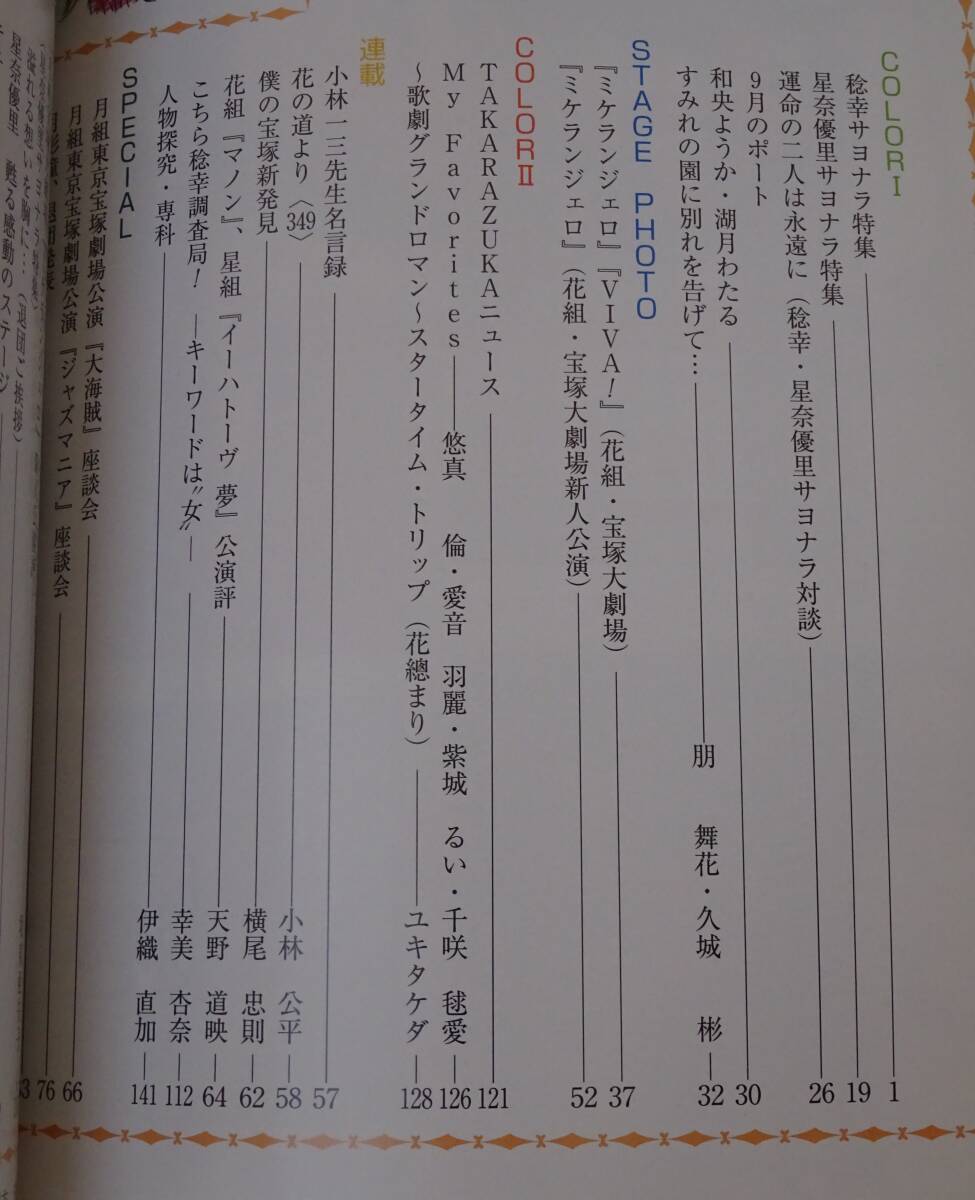 COLOR I
稔幸サヨナラ特集 1
星奈優里サヨナラ特集 19
運命の二人は永遠に（稔幸・星奈優里サヨナラ対談） 26
9月のポート
和央ようか・湖月わたる 30
すみれの園に別れを告げて… 朋 舞花・久城 彬 32
STAGE PHOTO
『ミケランジェロ』『VIVA！』（花組・宝塚大劇場） 37
『ミケランジェロ』（花組・宝塚大劇場新人公演） 52
COLOR II
TAKARAZUKAニュース 121
My Favorites 悠真 倫・愛音 羽麗・紫城 るい・千咲 毬愛 126
～歌劇グランドロマン～スタータイム・トリップ（花總まり） ユキタケダ 128
連載
小林一三先生名言録 57
花の道より〈349〉 小林 公平 58
僕の宝塚新発見 横尾 忠則 62
花組『マノン』、星組『イーハトーヴ 夢』公演評 天野 道映 64
こちら稔幸調査局！ ―キーワードは〝女〟― 幸美 杏奈 112
人物探究・専科 伊織 直加 141
SPECIAL
月組東京宝塚劇場公演『大海賊』座談会 66
月組東京宝塚劇場公演『ジャズマニア』座談会 76
溢れる想いを胸に…（退団ご挨拶）
星奈優里 甦る感動のステージ